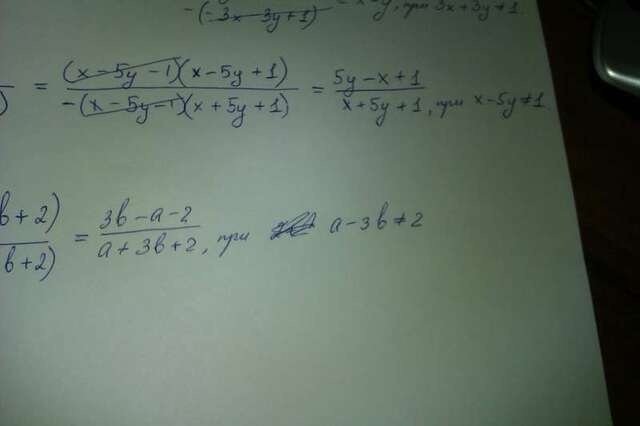 -(-3x-3y+1) , при 3x+3y≠1.
) = (x-5y-1)(x-5y+1) / -(x-5y-1)(x+5y+1) = 5y-x+1 / x+5y+1, при x-5y≠1.
b+2) / b+2) = 3b-a-2 / a+3b+2, при a-3b≠2